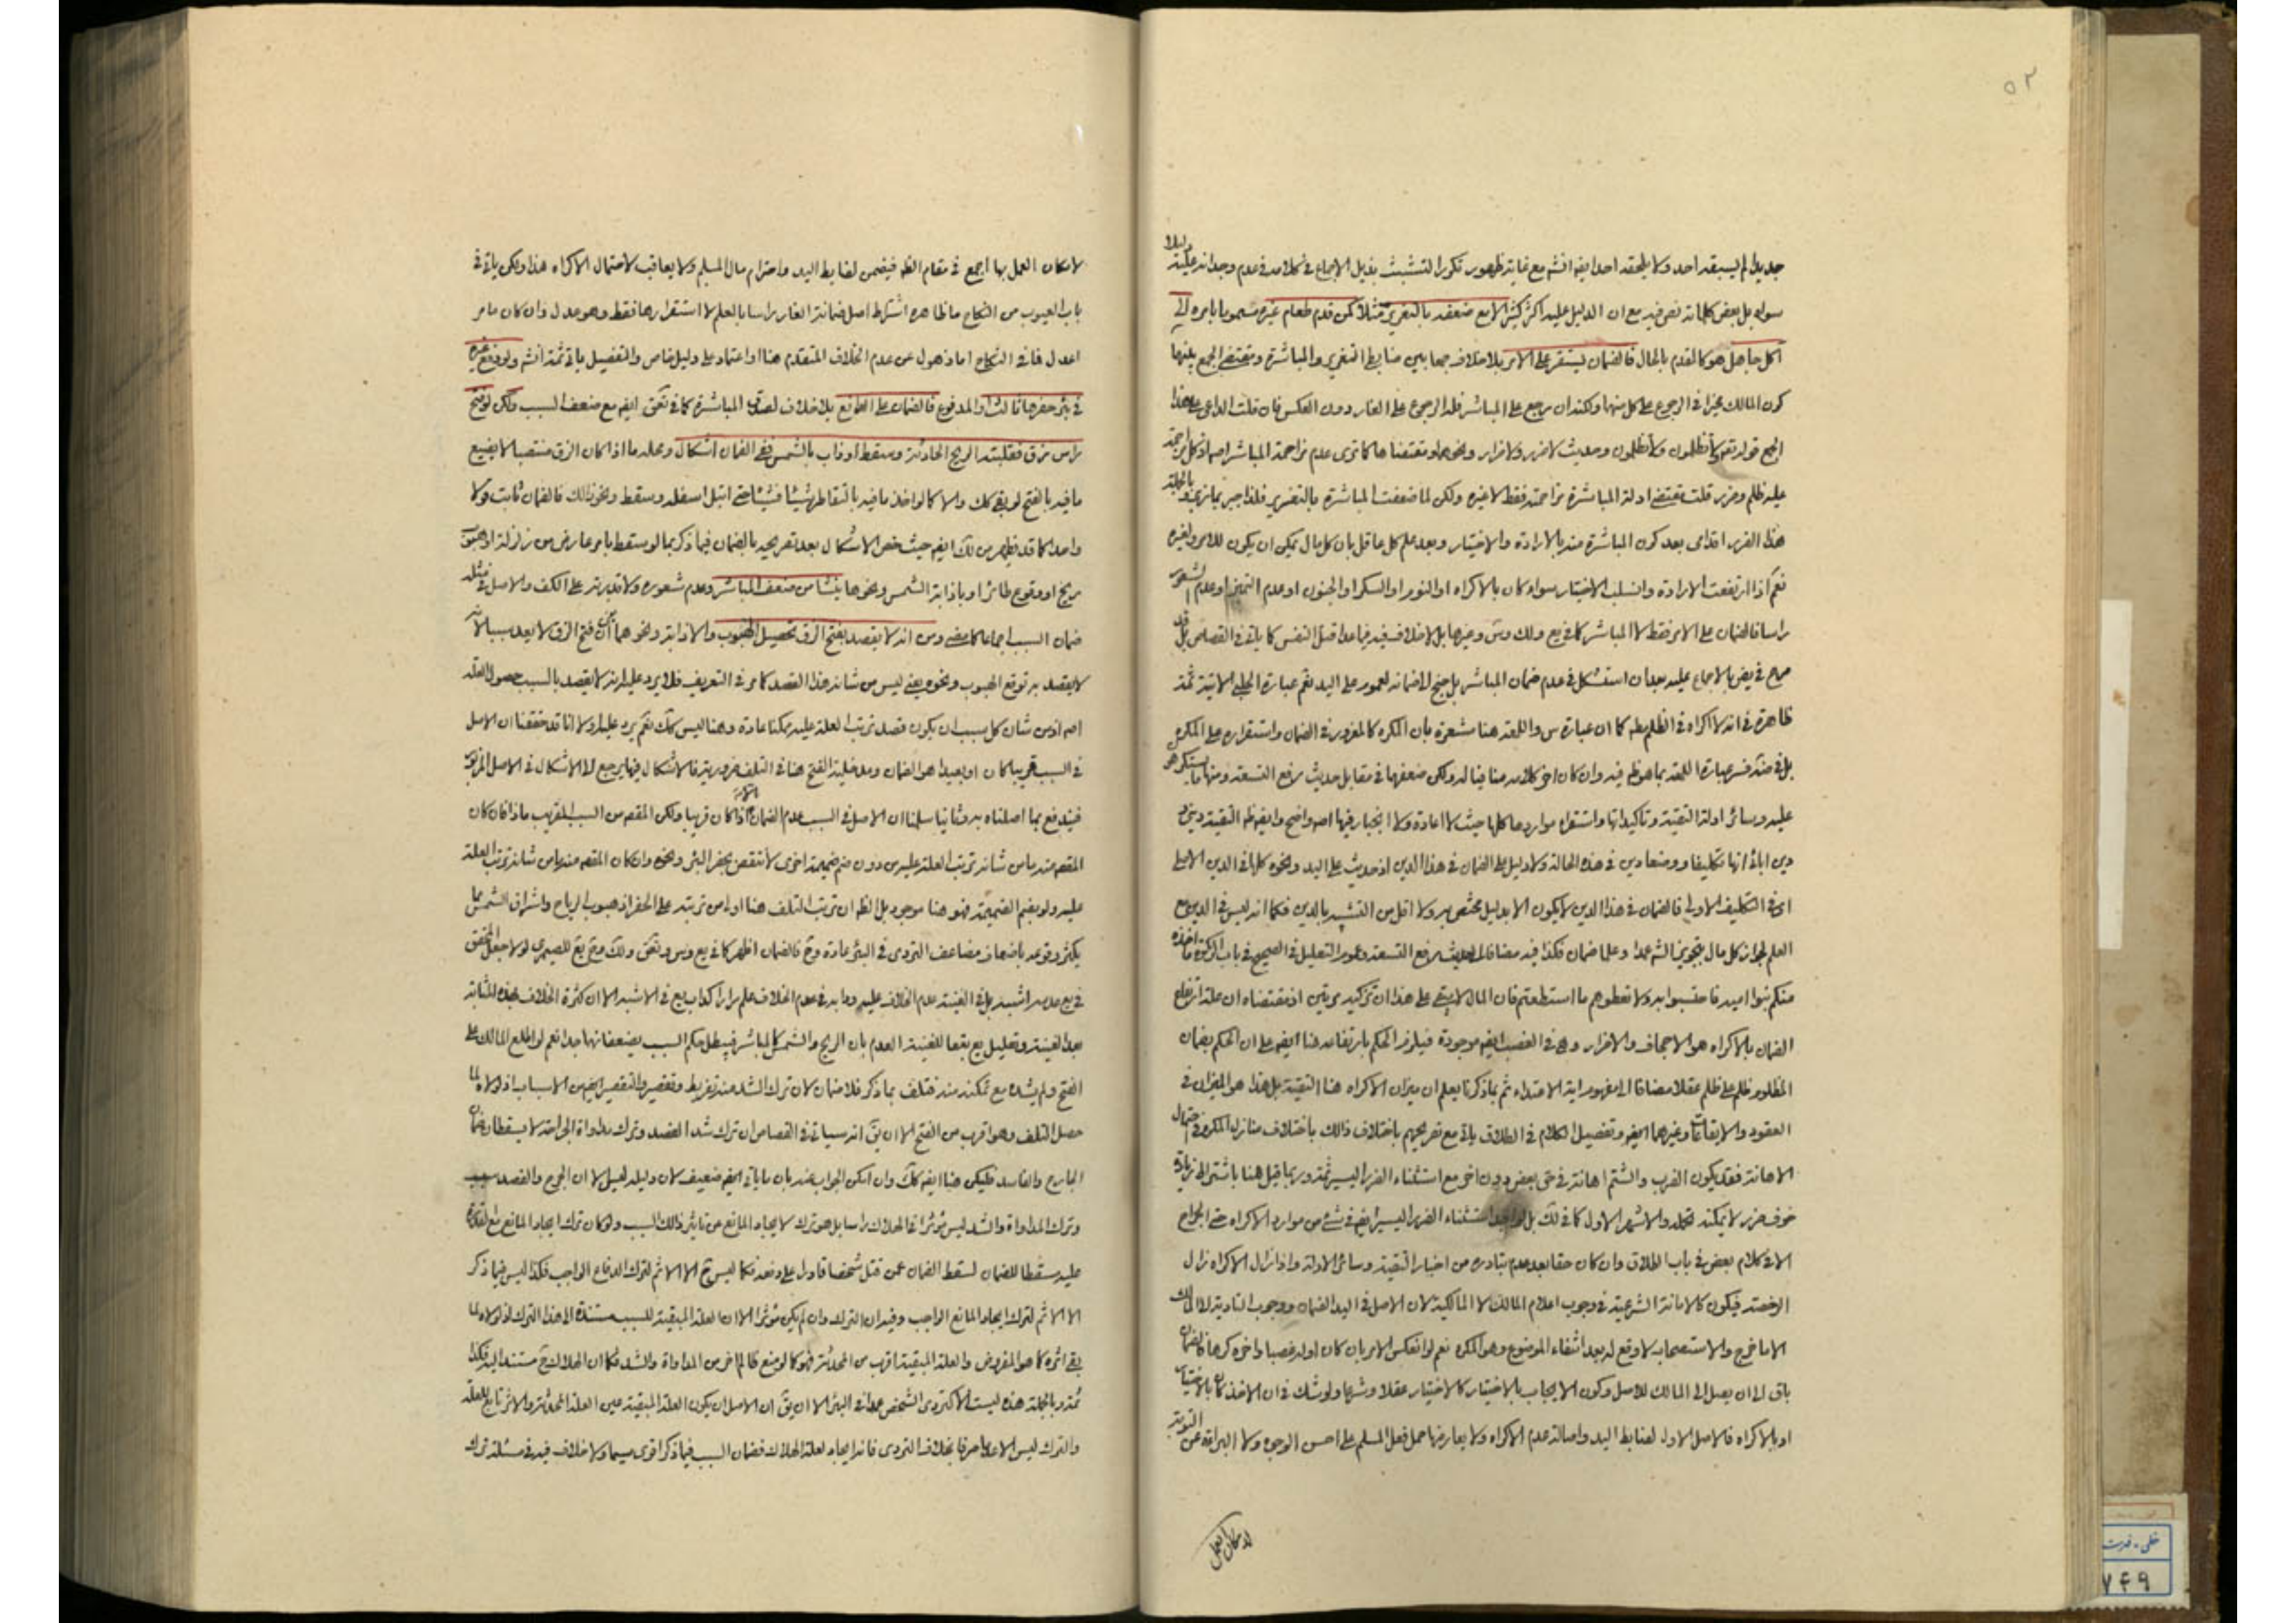 ٥٢
جديدا لم يسبقه احد ولا يلحقه احد ايضا مع غاية ظهور تكرر التشبث بذيل الاجماع في كلامه في عدم وجدانه عليه دليلا
سواه بل بعض كلماته نص فيه مع ان الدليل عليه اكثر كثير الا مع ضعفه بالتغرير مثلا كمن قدم طعام غيره مسموما بامره الى
اكل جاهل هو كالقدم بالحال فالضمان يستقر على الامر بلا خلاف جمعا بين ضابط التغرير والمباشرة ومقتضى الجمع بينهما
كون المالك مخيرا في الرجوع على كل منهما ولكنه ان يرجع على المباشر فله الرجوع على الغار دون العكس فان قلت الداعي على هذا
الجمع قوله تعالى لا تظلمون ولا تظلمون وحديث لا ضرر ولا ضرار ونحوهما ومقتضاها كما ترى عدم مزاحمة المباشر اصلا
عليه ظلم وضرر قلت مقتضى ادلة المباشرة مزاحمته فقط لا غيره ولكن لما ضعفت المباشرة بالتغرير فلذا جبر بما نزعه وبالجملة
هذا الضرر اقدامى بعد كون المباشرة منه بالارادة والاختيار وبعد علم كل عاقل بان كل مال يمكن ان يكون للامر ولغيره
نعم اذا ارتفعت الارادة وانسلب الاختيار سواء كان بالاكراه او النوم او السكر او الجنون او عدم التميز او عدم الشعور
راسا فالضمان على الامر فقط لا المباشر كما في يع ولك وس وغيرها بل لا خلاف فيه فيما عدا قتل النفس كما ياتي في القصاص بل قد
صرح في يض بالاجماع عليه بعد ان استشكل في عدم ضمان المباشر بل جنح الى ضمانه لعموم على اليد نعم عبارة الحلبي الاتية ثمة
ظاهرة في انه لا اكراه في الظلم كما ان عبارة س واللمعة هنا مشعرة بان المكره كالمغرور في الضمان واستقراره على المكره
بل في ضه فسر عبارة اللمعة بما هو ظ فيه وان كان اخر كلامه منافيا له ولكن ضعفها في مقابل حديث رفع التسعة ومنها ما استكرهوا
عليه وسائر ادلة التقية وتاكيداتها واستقراء مواردها كلها حيث لا اعادة ولا انجبار فيها اصلا واضح وايضا ظ التقية ديني و
دين ابائي انها تكليفا ووضعا دين في هذه الحالة ولا دليل على الضمان في هذا الدين اذ حديث على اليد ونحوه كلها في الدين الاصلي
اي في التكليف الاولى فالضمان في هذا الدين لا يكون الا بدليل مختص به ولا اقل من التشبيه بالدين فكما انه ليس في الدين مع
العلم بجواز كل مال بتجويز الشرع عمدا وعلما ضمان فكذا فيه مضافا الى حديث رفع التسعة وعموم التعليل في الصحيح في باب الزكوة ما اخذه
منكم بنو امية فاحتسبوا به ولا تعطوهم ما استطعتم فان المال لا يبقى على هذا ان تزكيه مرتين اذ مقتضاه ان علة ارتفاع
الضمان بالاكراه هو الاجحاف والاضرار وهى في الغصب ايضا موجودة فيلزم الحكم بارتفاعه هنا ايضا على ان الحكم بضمان
المظلوم ظلم على ظلم عقلا مضافا الى مفهوم اية الاعتداء ثم بما ذكرنا يعلم ان ميزان الاكراه هنا التقية بل هذا هو الميزان في
العقود والايقاعات وغيرهما ايضا وتفصيل الكلام في الطلاق ياتي مع تصريحهم باختلاف ذلك باختلاف منازل المكره في احتمال
الاهانة فقد يكون الضرب والشتم اهانة في حق بعض دون اخر مع استثناء الضرر اليسير ثمة وربما قيل هنا باشتراط زيادة
خوف ضرر لا يمكنه تحمله والاشهر الاول كما في لك بل لم اجد استثناء الضرر اليسير ايضا في شئ من موارد الاكراه حتى الجراح
الا في كلام بعض في باب الطلاق وان كان حقا بعد عدم تبادره من اخبار التقية وسائر الادلة واذا زال الاكراه زال
الرخصة فيكون كالامانة الشرعية في وجوب اعلام المالك لا المالكية لان الاصل في اليد الضمان ووجوب التادية الى المالك
الا ما خرج والاستصحاب لا وقع له بعد انتفاء الموضوع وهو المكره نعم لو انعكس الامر بان كان اوله غصبا واخره كرها فالضمان
باق الى ان يصل الى المالك للاصل وكون الايجاب بالاختيار كالاختيار عقلا وشرعا ولو شك في ان الاخذ كان بالاختيار
او بالاكراه فالاصل الاول لضابط اليد واصالة عدم الاكراه ولا يعارضها حمل فعل المسلم على احسن الوجوه ولا البرائة عن التوبة
لامكان العمل
لامكان العمل بها اجمع في مقام الظ فيضمن لضابط اليد واحترام مال المسلم ولا يعاقب لاحتمال الاكراه هذا ولكن ياتي في
باب العيوب من النكاح ما ظاهره اشتراط اصل ضمانة الغار راسا بالعلم لا استقرارها فقط وهو عدل وان كان ما مر
اعدل فما في النكاح اما ذهول عن عدم الخلاف المتقدم هنا او اعتماد على دليل خاص والتفصيل ياتي ثمة انشه ولو دفع غيره
في بئر حفرها ثالث او المدفوع فالضمان على الدافع بلا خلاف لصدق المباشرة كما في تعق ايضا مع ضعف السبب ولكن لو فتح
راس زق فقلبته الريح الحادثة وسقط او ذاب بالشمس ففي الضمان اشكال ومحله ما اذا كان الزق منتصبا لا يضيع
ما فيه بالفتح لو بقى كك والا كما لو اخذ ما فيه بالتقاطر شيئا فشيئا حتى ابتل اسفله وسقط ونحو ذلك فالضمان ثابت ولا
واحدا كما قد يظهر من لك ايضا حيث خص الاشكال بعد تصريحه بالضمان فيما ذكر بما لو سقط بامر عارض من زلزلة او هبوب
ريح او وقوع طائر او باذابة الشمس ونحوها ينشا من ضعف المباشر وعدم شعوره ولا قدرته على الكف والاصل في مثله
ضمان السبب اجماعا كما مضى ومن انه لا يقصد بفتح الزق تحصيل الهبوب والاذابة ونحوهما اي فتح الزق لا يعد سببا لانه
لا يقصد به توقع الهبوب ونحوه يعني ليس من شانه هذا القصد كما مر في التعريف فلا يرد عليه انه لا يقصد بالسبب حصول العلة
اصلا اذ من شان كل سبب ان يكون قصد ترتب العلة عليه ممكنا عادة وهنا ليس كك نعم يرد عليه اولا انا قد حققنا ان الاصل
في السبب قريبا كان او بعيدا هو الضمان ومدخلية الفتح هنا في التلف ضرورية فالاشكال فيها يرجع الى الاشكال في الاصل المزبور
فيندفع بما اصلناه به وثانيا سلمنا ان الاصل في السبب عدم الضمان الا اذا كان قريبا ولكن المقصود من السبب القريب ماذا فان كان
المقصود منه ما من شانه ترتب العلة عليه من دون ضم ضميمة اخرى لانتقض بحفر البئر ونحوه وان كان المقصود منه ما من شانه ترتب العلة
عليه ولو بضم الضميمة فهو هنا موجود بل الظ ان ترتب التلف هنا اولى من ترتبه على الحفر اذ هبوب الرياح واشراق الشمس مما
يكثر وقوعه باضعاف مضاعف التردى في البئر عادة وح فالضمان اظهر كما في يع وس وتعق ولك
في يع عدمه اشبه بل في الغنية عدم الخلاف عليه وما به في عدم الخلاف علم مرارا كدأب يع في الاشبه الا ان كثرة الخلاف بهذه المثابة
بعد الغنية وتعليل يع تبعا للغنية العدم بان الريح والشمس كالمباشر فيبطل حكم السبب يضعفانها جدا نعم لو اطلع المالك على
الفتح ولم يشده مع تمكنه منه فتلف بما ذكر فلا ضمان لان ترك الشد منه تفريط وتقصير والتقصير ايضا من الاسباب اذ لولاه لما
حصل التلف وهو اقرب من الفتح الا ان يق انه سياتي في القصاص ان ترك شد الفصد وترك مداواة الجراحة لا يسقطان ضمان
الجارح والفاصد فليكن هنا ايضا كك وان امكن الجواب عنه بان ما ياتي ايضا ضعيف لان دليله ليس الا ان الجرح والفصد سبب
وترك المداواة والشد ليس مؤثرا في الهلاك راسا بل هو ترك لايجاد المانع عن تاثير ذلك السبب ولو كان ترك ايجاد المانع مع القدرة
عليه مسقطا للضمان لسقط الضمان عمن قتل شخصا قادرا على دفعه فكما ليس ثمة الا الاثم لترك الدفاع الواجب فكذا ليس فيما ذكر
الا الاثم لترك ايجاد المانع الواجب وفيه ان الترك وان لم يكن مؤثرا الا ان العلة المبقية للسبب مستندة الى هذا الترك اذ لولاه لما
بقى اثره كما هو المفروض والعلة المبقية اقرب من المحدثة فهو كما لو منع ظالم اخر من المداواة والشد فكما ان الهلاك ح مستند اليه فكذا
ثمة وبالجملة هذه ليست الا كتردى الشخص عمدا في البئر الا ان يق ان الاصل ان يكون العلة المبقية عين العلة المحدثة والاثر تابع للعلة
والترك ليس الا عدما صرفا بخلاف التردى فانه ايجاد لعلة الهلاك فضمان السبب فيما ذكر اقوى سيما ولا خلاف فيه في مسئلة ترك
خطى - فهرست
٧٤٩